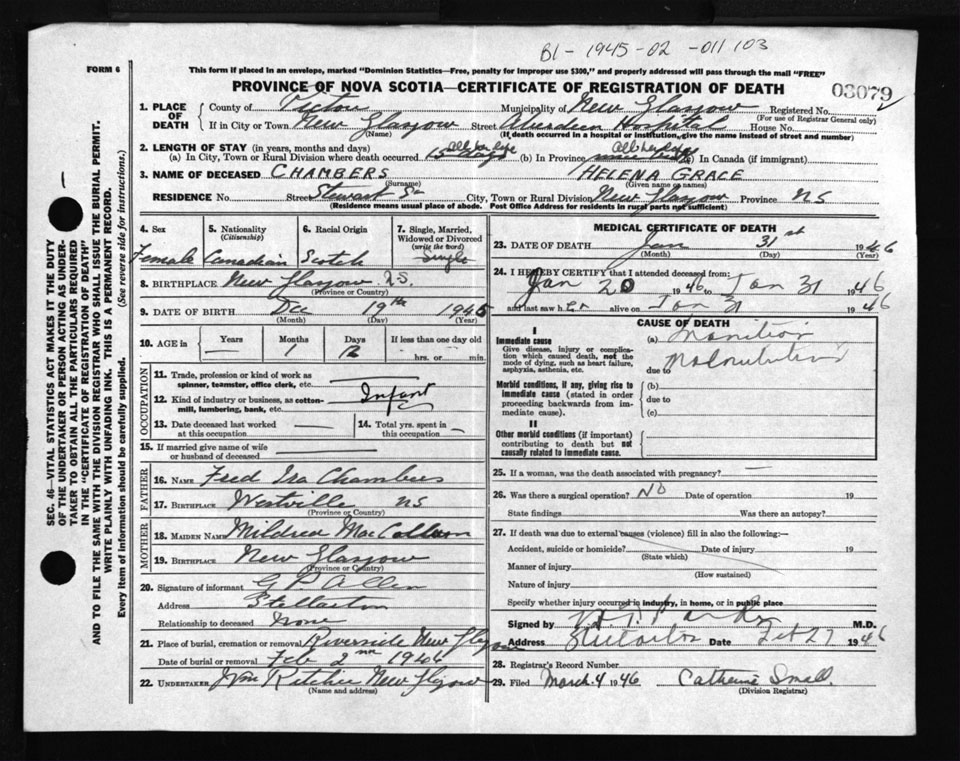 B1- 1945-02 -011103
FORM 6
This form if placed in an envelope, marked "Dominion Statistics—Free, penalty for improper use $300," and properly addressed will pass through the mail "FREE"
PROVINCE OF NOVA SCOTIA—CERTIFICATE OF REGISTRATION OF DEATH
03079
1. PLACE OF DEATH County of Pictou Municipality of New Glasgow Registered No.
(For use of Registrar General only)
If in City or Town New Glasgow Street Aberdeen Hospital House No.
(Name) (If death occurred in a hospital or institution, give the name instead of street and number)
2. LENGTH OF STAY (in years, months and days)
(a) In City, Town or Rural Division where death occurred All her life (b) In Province All her life (c) In Canada (if immigrant)
3. NAME OF DECEASED CHAMBERS HELENA GRACE
(Surname) (Given name or names)
RESIDENCE No. Street Stewart St City, Town or Rural Division New Glasgow Province NS
(Residence means usual place of abode. Post Office Address for residents in rural parts not sufficient)
4. Sex Female
5. Nationality (Citizenship) Canadian
6. Racial Origin Scotch
7. Single, Married, Widowed or Divorced (write the word) Single
8. BIRTHPLACE New Glasgow N.S.
(Province or Country)
9. DATE OF BIRTH Dec 19th 1945
(Month) (Day) (Year)
10. AGE in Years — Months 1 Days 12 If less than one day old
hrs. or min.
OCCUPATION
11. Trade, profession or kind of work as spinner, teamster, office clerk, etc.
12. Kind of industry or business, as cotton-mill, lumbering, bank, etc. Infant
13. Date deceased last worked at this occupation —
14. Total yrs. spent in this occupation —
15. If married give name of wife or husband of deceased —
FATHER
16. NAME Fred Ira Chambers
17. BIRTHPLACE Westville NS
(Province or Country)
MOTHER
18. MAIDEN NAME Mildred MacCallum
19. BIRTHPLACE New Glasgow
(Province or Country)
20. Signature of informant G P Allen
Address Stellarton
Relationship to deceased none
21. Place of burial, cremation or removal Riverside New Glasgow
Date of burial or removal Feb 2nd 1946
22. UNDERTAKER Wm Ritchie New Glasgow
(Name and address)
MEDICAL CERTIFICATE OF DEATH
23. DATE OF DEATH Jan 31st 1946
(Month) (Day) (Year)
24. I HEREBY CERTIFY that I attended deceased from:
Jan 20 1946 to Jan 31 1946
and last saw her alive on Jan 31 1946
CAUSE OF DEATH
I
Immediate cause
Give disease, injury or complication which caused death, not the mode of dying, such as heart failure, asphyxia, asthenia, etc.
(a)
due to Malnutrition
Morbid conditions, if any, giving rise to immediate cause (stated in order proceeding backwards from immediate cause).
(b)
due to
(c)
II
Other morbid conditions (if important) contributing to death but not causally related to immediate cause.
25. If a woman, was the death associated with pregnancy? —
26. Was there a surgical operation? No Date of operation 19
State findings Was there an autopsy?
27. If death was due to external causes (violence) fill in also the following:—
Accident, suicide or homicide? Date of injury 19
(State which)
Manner of injury
(How sustained)
Nature of injury
Specify whether injury occurred in industry, in home, or in public place
Signed by M.D.
Address Stellarton Date Feb 27 1946
28. Registrar's Record Number
29. Filed March 4 1946 Catherine Small
(Division Registrar)
SEC. 46—VITAL STATISTICS ACT MAKES IT THE DUTY
OF THE UNDERTAKER OR PERSON ACTING AS UNDER-
TAKER TO OBTAIN ALL THE PARTICULARS REQUIRED
IN THE "CERTIFICATE OF REGISTRATION OF DEATH"
AND TO FILE THE SAME WITH THE DIVISION REGISTRAR WHO SHALL ISSUE THE BURIAL PERMIT.
WRITE PLAINLY WITH UNFADING INK. THIS IS A PERMANENT RECORD.
Every item of information should be carefully supplied. (See reverse side for instructions.)